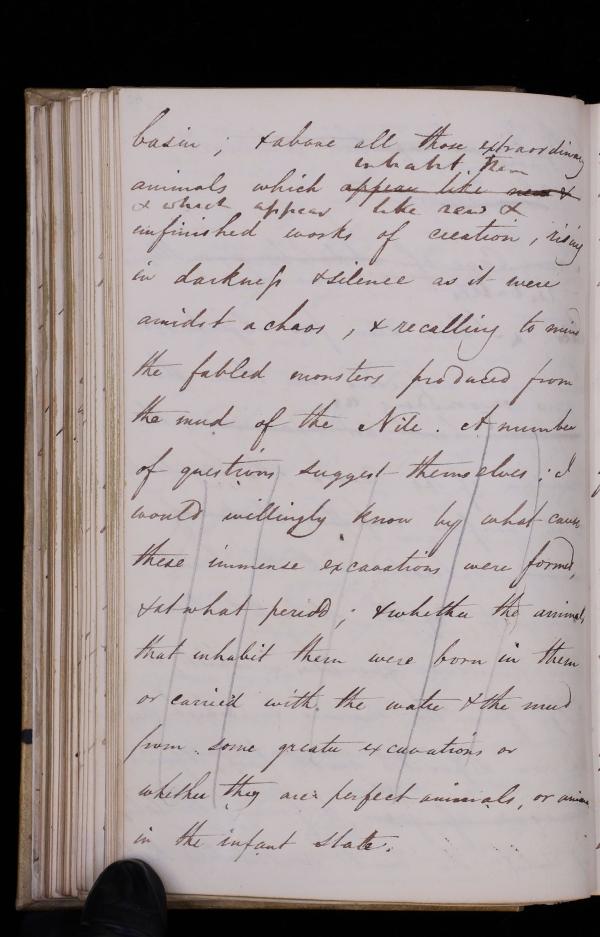 basin; & above all those extraordinary
inhabit them
animals which appear like new &
& which appear like new &
unfinished works of creation, rising
in darkness & silence as it were
amidst a chaos, & recalling to mind
the fabled monsters produced from
the mud of the Nile. A number
of questions suggest themselves; I
would willingly know by what cause
these immense excavations were formed,
& at what period; & whether the animals
that inhabit them were born in them
or carried with the water & the mud
from some greater excavations or
whether they are perfect animals, or animals
in the infant state.